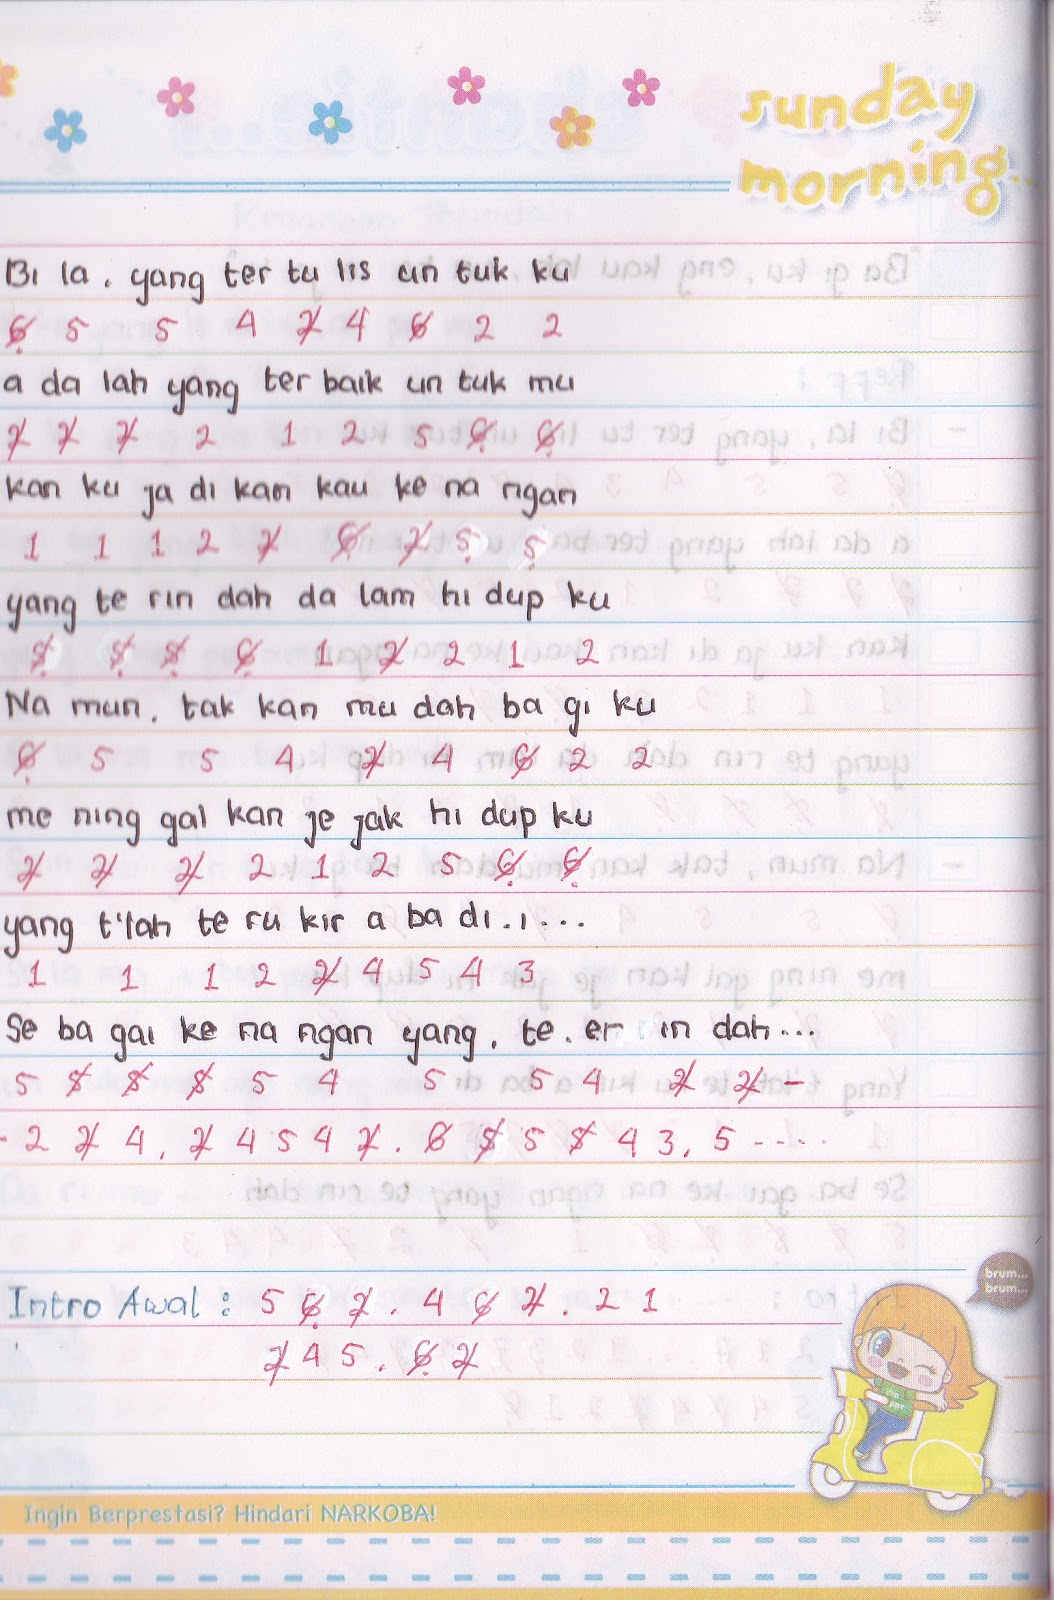 sunday
morning..
Bi la, yang ter tu lis un tuk ku
6̸ 5 5 4 2̸ 4 6̸ 2 2
a da lah yang ter baik un tuk mu
2̸ 2̸ 2̸ 2 1 2 5 6̸ 6̸
kan ku ja di kan kau ke na ngan
1 1 1 2 2̸ 6̸ 2̸ 5 5
yang te rin dah da lam hi dup ku
5̸ 5̸ 5̸ 6̸ 1 2̸ 2 1 2
Na mun, tak kan mu dah ba gi ku
6̸ 5 5 4 2̸ 4 6̸ 2 2
me ning gal kan je jak hi dup ku
2̸ 2̸ 2̸ 2 1 2 5 6̸ 6̸
yang t'lah te ru kir a ba di.i...
1 1 1 2 2̸ 4 5 4 3
Se ba gai ke na ngan yang, te. er in dah...
5 5̸ 5̸ 5̸ 5 4 5 5 4 2̸ 2̸ -
- 2 2̸ 4, 2̸ 4 5 4 2̸. 6 5̸ 5 5̸ 4 3, 5 -....
Intro Awal : 5 6̸ 2̸. 4 6̸ 2̸. 2 1
2̸ 4 5. 6̸ 2̸
brum...
brum...
Ingin Berprestasi? Hindari NARKOBA!